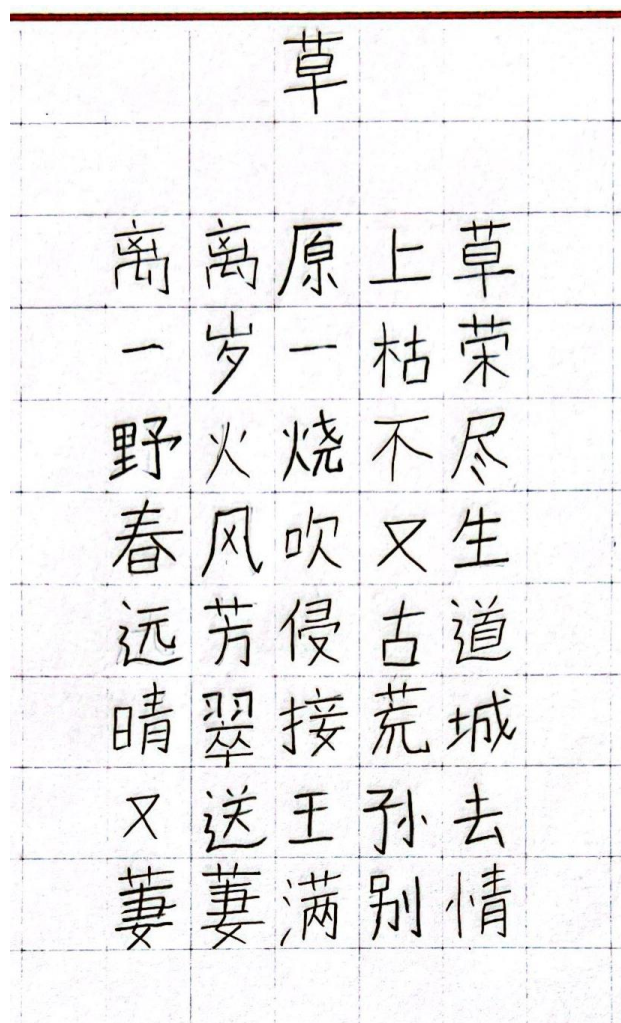 草
离离原上草
一岁一枯荣
野火烧不尽
春风吹又生
远芳侵古道
晴翠接荒城
又送王孙去
萋萋满别情